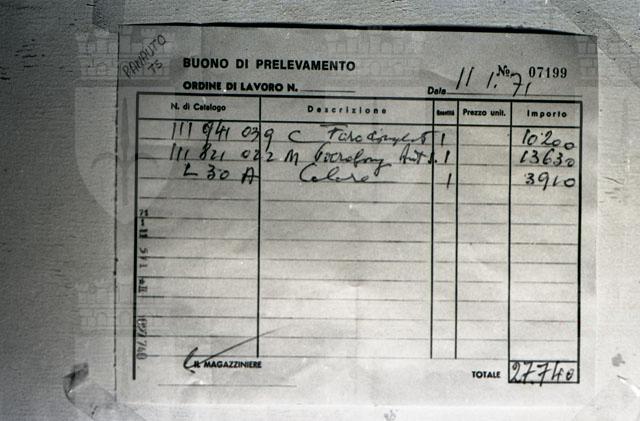 PANAUTO
TS
BUONO DI PRELEVAMENTO
Nº 07199
ORDINE DI LAVORO N.
Data 11 1. 71
N. di Catalogo Descrizione Quantità Prezzo unit. Importo
111 941 039 C Faro completo 1 10200
111 821 022 M 1 13630
L 30 A Colore 1 3910
IL MAGAZZINIERE
TOTALE 27.740